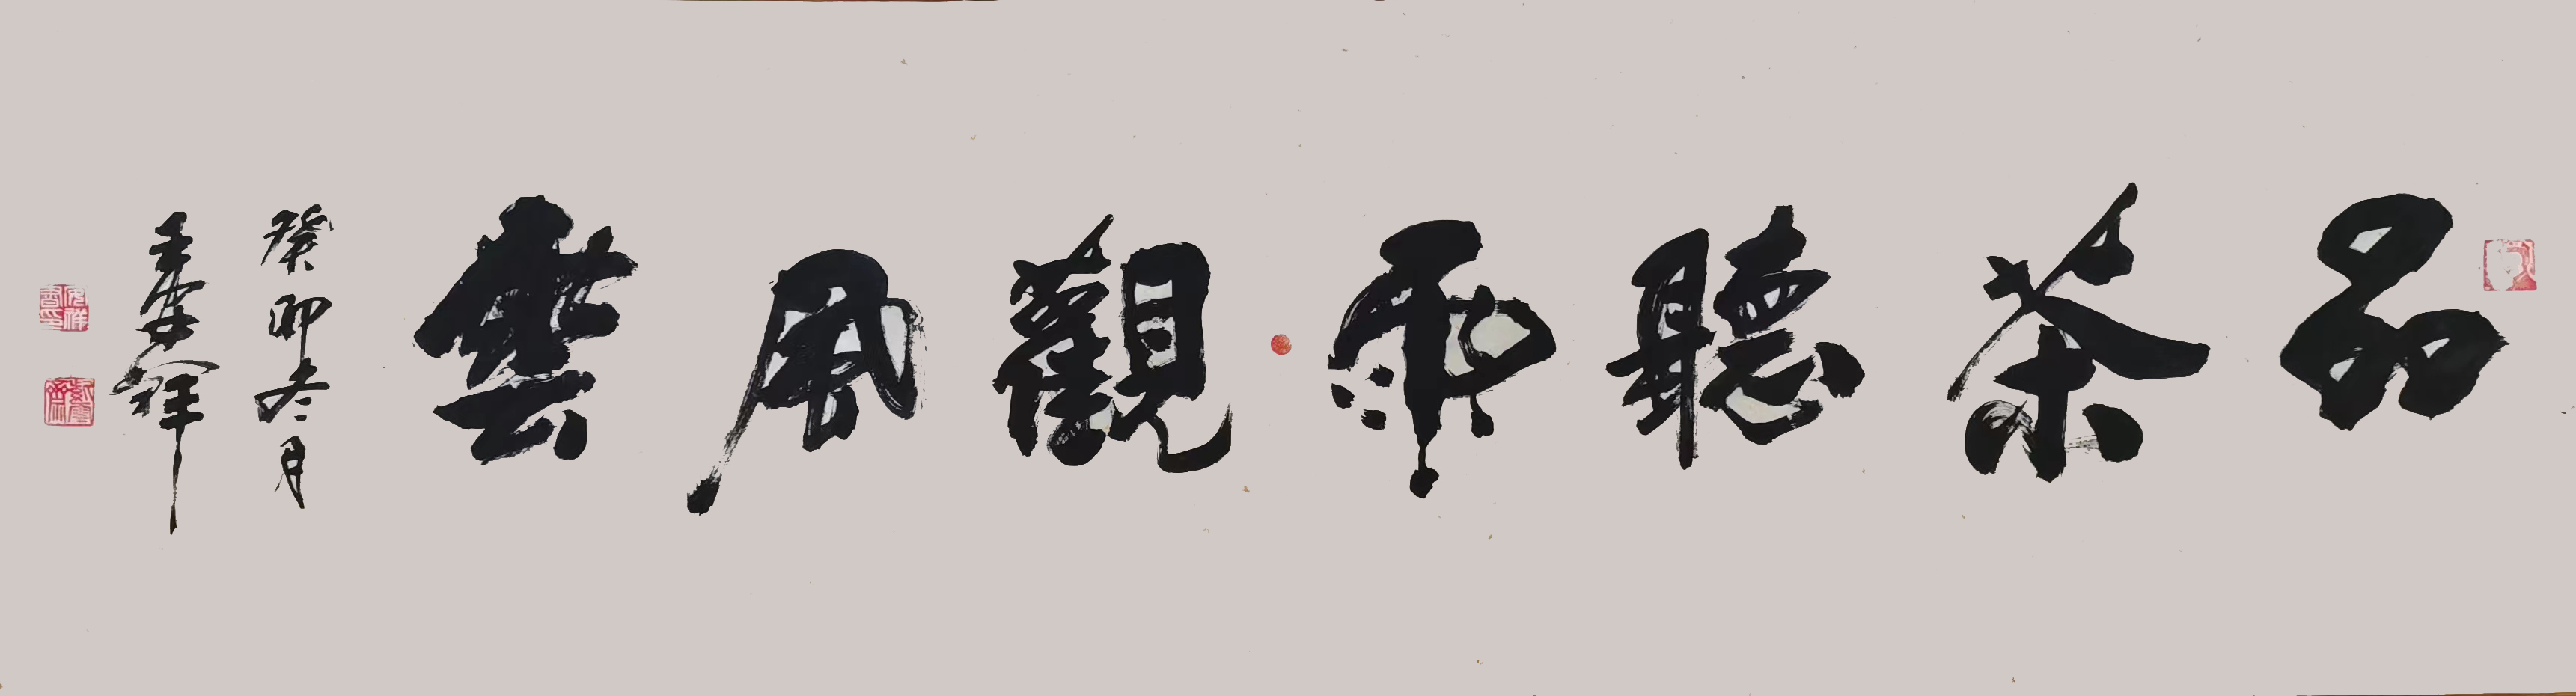 品茶聽雨觀風雲
癸卯冬月